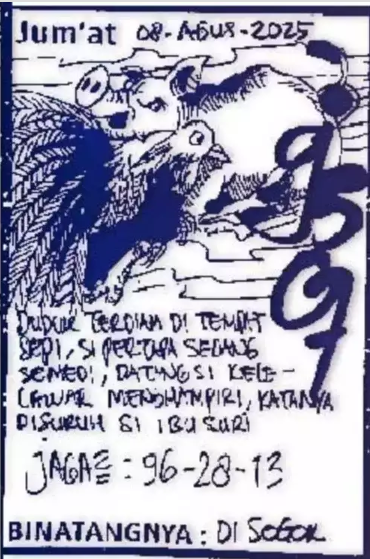 Jum'at 08-AGUS-2025
9507
DUDUK TERDIAM DI TEMPAT
SEPI, SI PERTAPA SEDANG
SEMEDI, DATANG SI KELE-
LAWAR MENGHAMPIRI, KATANYA
DISURUH SI IBU SURI
JAGA2 : 96-28-13
BINATANGNYA : DI SOGOK